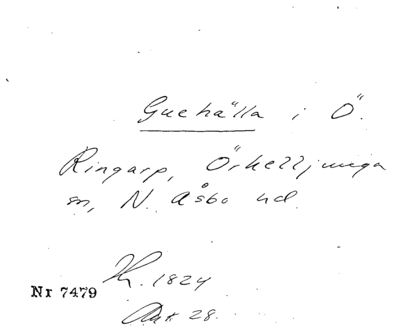 Guehälla i Ö.
Ringarp, Örkelljunga
sn, N. Åsbo hd.
Kr. 1824
Nr 7479
Akt 28.